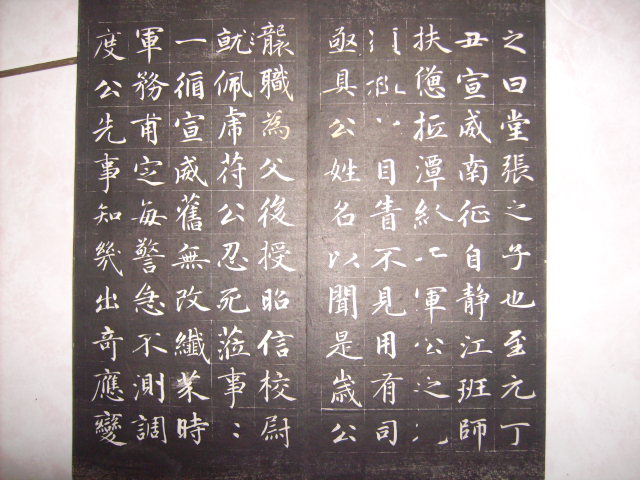 之曰堂張之子也至元丁
丑宣威南征自靜江班師
扶潭軍公之
目眚不見用有司
亟具公姓名以聞是歲公
襲職為父後授昭信校尉
就佩虎符公忍死蒞事
一循宣威舊無改纖業時
軍務甫定每警急不測調
度公先事知幾出奇應變